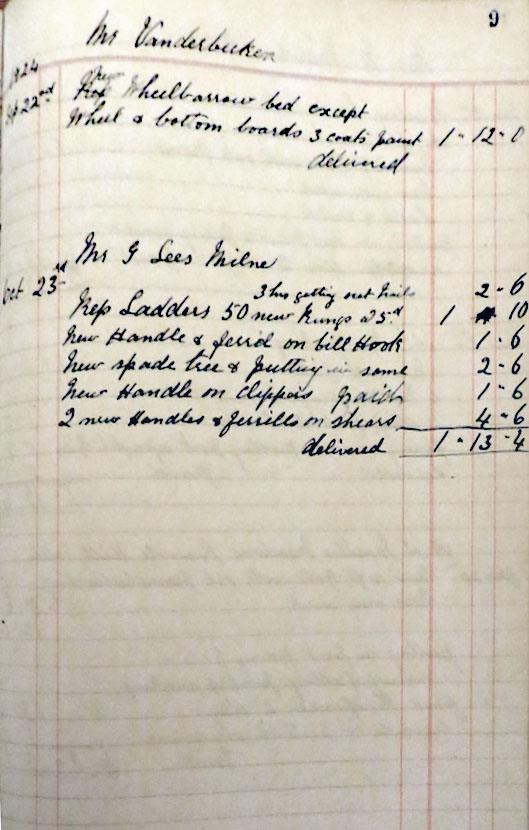 9
Mr Vanderbucken
1924
New
22nd Wheelbarrow bed except
Wheel & bottom boards 3 coats paint 1 - 12 - 0
delivered
Mr G Lees Milne
Oct 23rd 3 hrs getting out nails 2 - 6
Rep Ladders 50 new Rungs a 5d 1 10
New Handle & ferrd on bill Hook 1 - 6
New spade tree & putting in same 2 - 6
New Handle on Clippers paid 1 - 6
2 new Handles & ferrills on shears 4 - 6
delivered 1 - 13 - 4